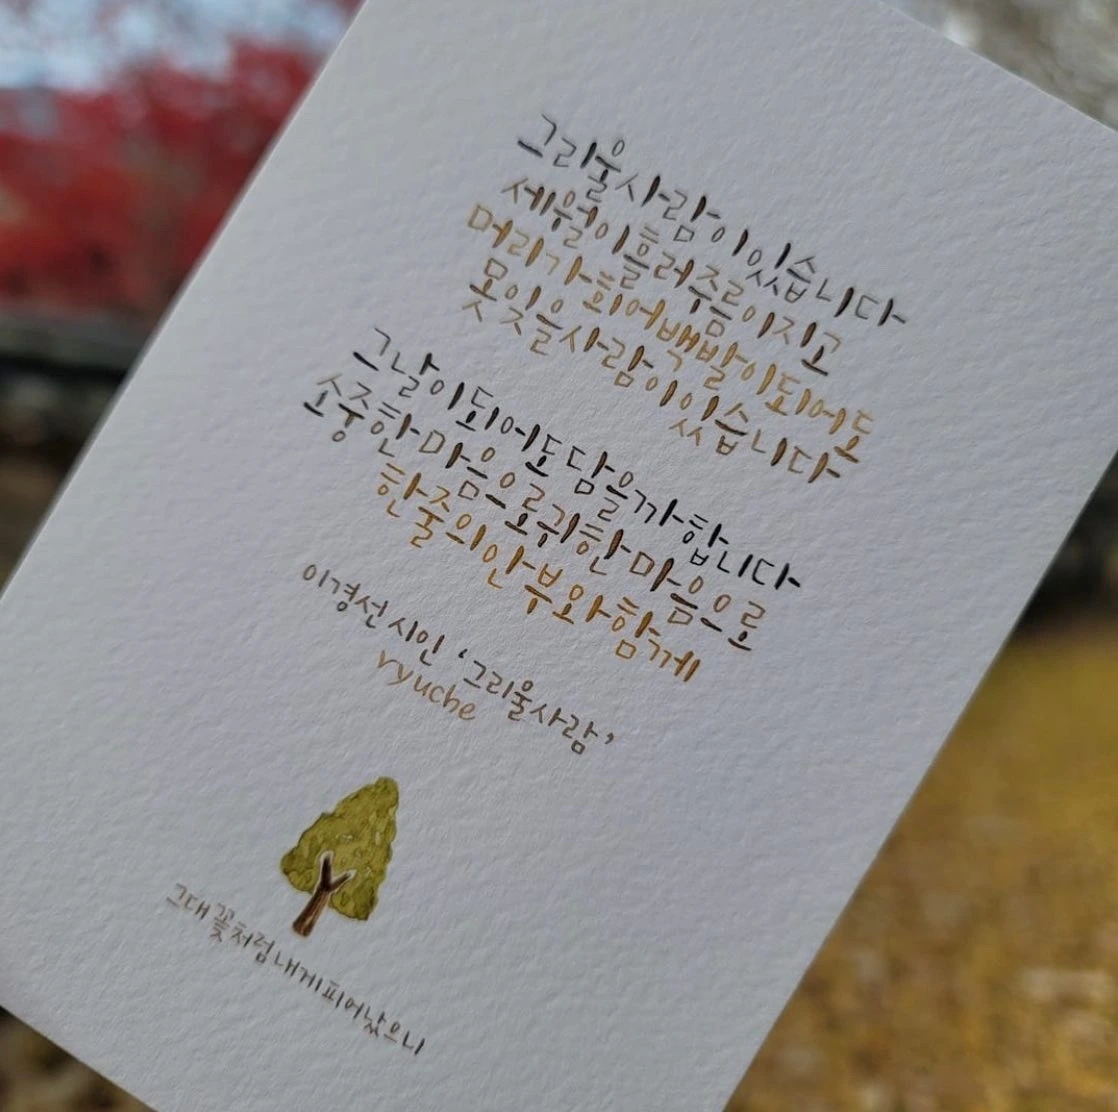 그리울 사람이 있습니다
세월이 흘러 주름이 지고
머리가 희어 백발이 되어도
못 잊을 사람이 있습니다
그날이 되어도 담을까 합니다
소중한 마음으로 귀한 마음으로
한 줄의 안부와 함께
이경선 시인 '그리울 사람'
ryuche
그대 꽃처럼 내게 피어났으니